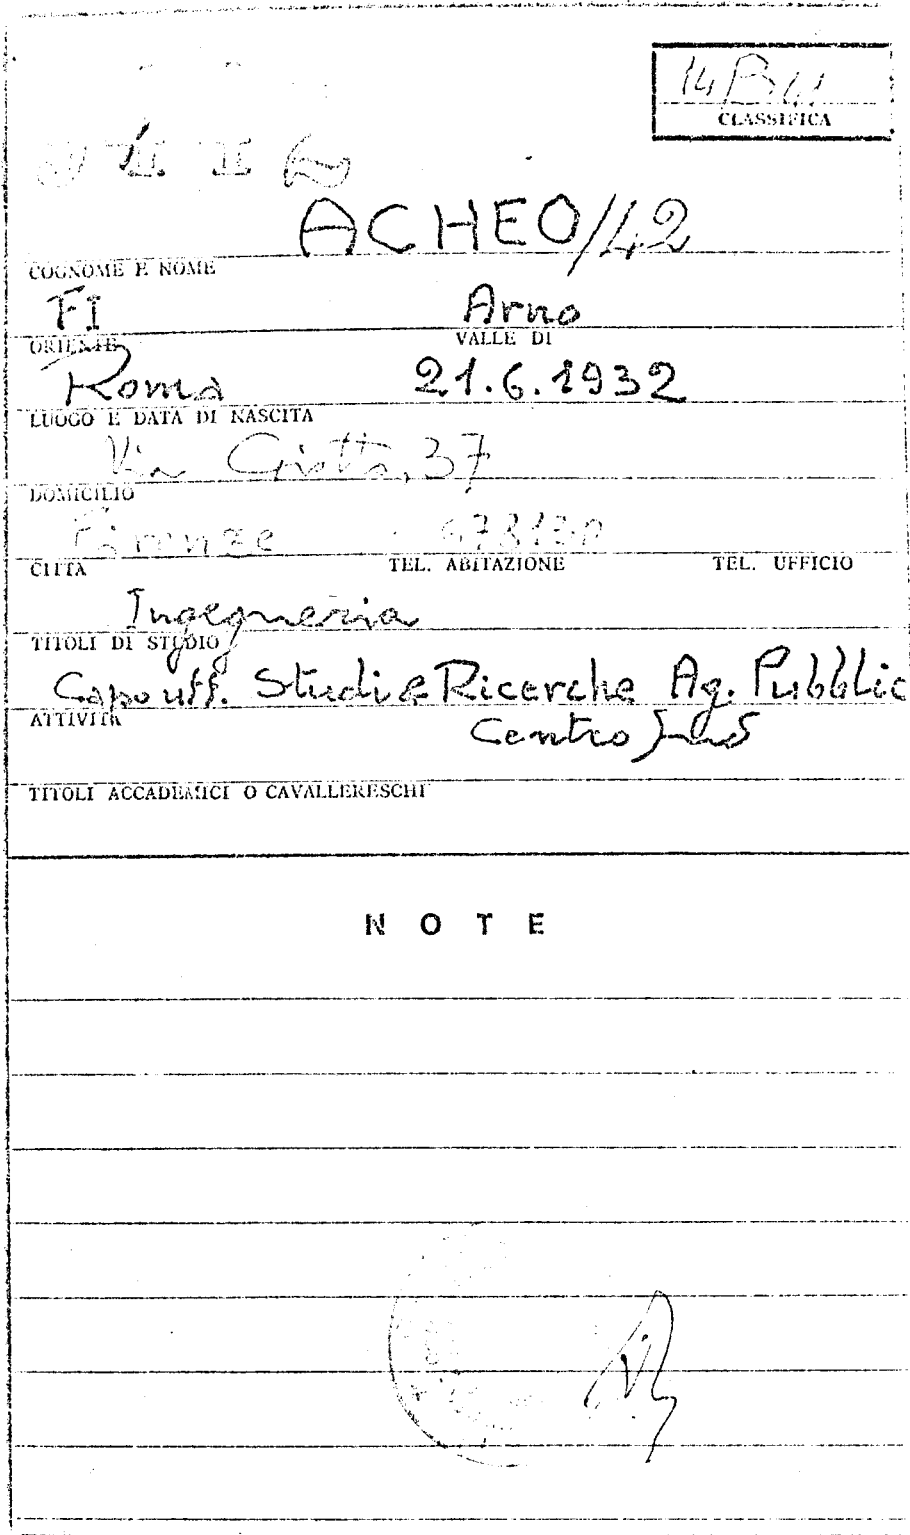 14 B
CLASSIFICA
ACHEO/42
COGNOME E NOME
FI Arno
ORIENTE VALLE DI
Roma 21.6.1932
LUOGO E DATA DI NASCITA
Via Giotto, 37
DOMICILIO
Firenze
CITTA TEL. ABITAZIONE TEL. UFFICIO
Ingegneria
TITOLI DI STUDIO
Capo uff. Studi e Ricerche Ag. Pubblic
ATTIVITA
Centro
TITOLI ACCADEMICI O CAVALLERESCHI
NOTE